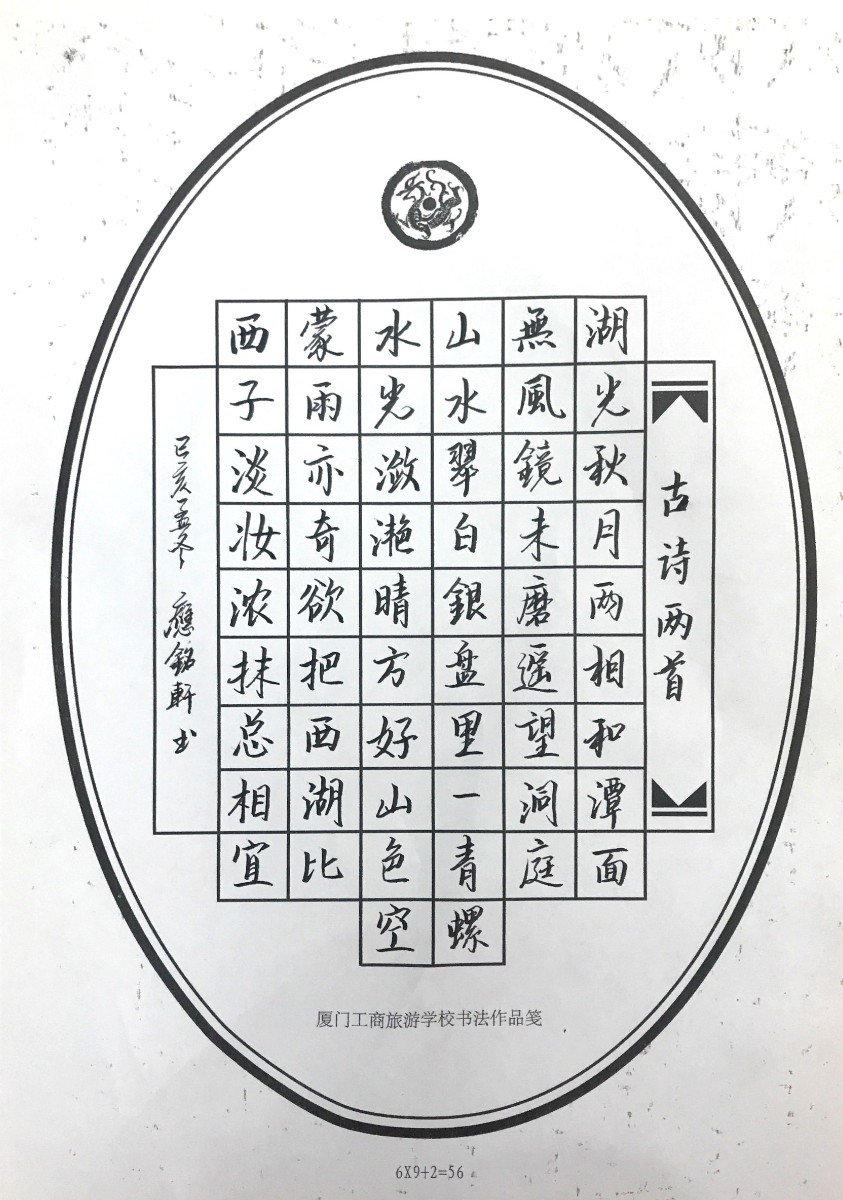 古诗两首
湖光秋月两相和潭面
無風鏡未磨遥望洞庭
山水翠白銀盘里一青螺
水光潋滟晴方好山色空
蒙雨亦奇欲把西湖比
西子淡妆浓抹总相宜
己亥孟冬 應銘軒书
厦门工商旅游学校书法作品笺
6X9+2=56